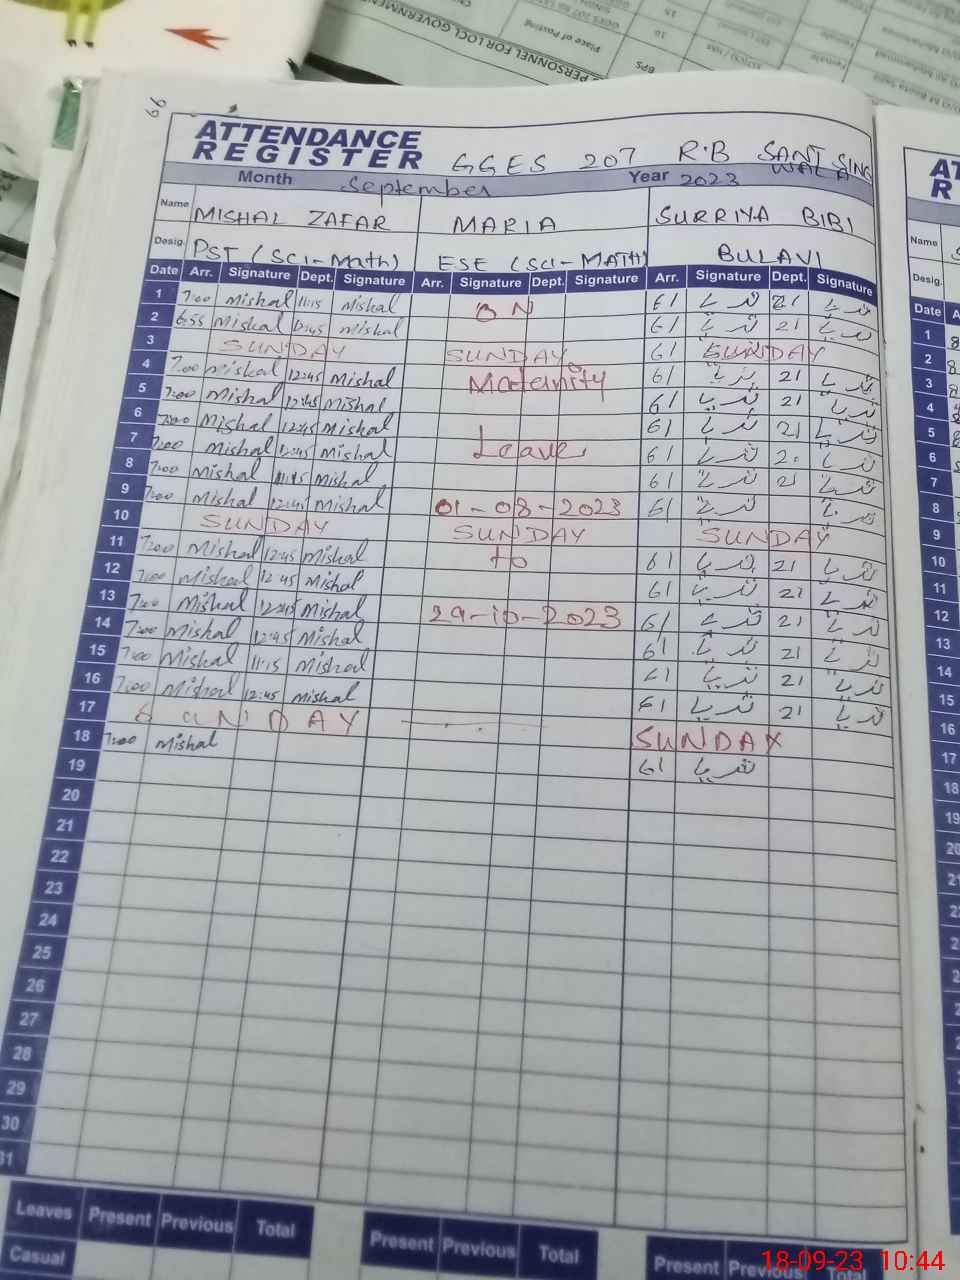 PERSONNEL FOR LOCL GOVERNMENT
Place of Posting
BPS
66
ATTENDANCE
REGISTER
GGES 207 R.B SANT SING
WALA
Month September Year 2023
Name MISHAL ZAFAR MARIA SURRIYA BIBI
Desig. PST (Sci-Math) ESE (SCI-MATH) BULAVI
Date Arr. Signature Dept. Signature Arr. Signature Dept. Signature Arr. Signature Dept. Signature
1 7:00 Mishal 11:15 Mishal ON 61 ثریا 21 ثریا
2 6:55 Mishal mishal 61 ثریا 21 ثریا
3 SUNDAY SUNDAY 61 SUNDAY
4 7:00 Mishal 12:45 Mishal Maternity 61 ثریا 21 ثریا
5 7:00 Mishal 12:45 Mishal 61 ثریا 21 ثریا
6 7:00 Mishal 12:45 Mishal Leave 61 ثریا 21 ثریا
7 7:00 Mishal 12:45 Mishal 61 ثریا ثریا
8 7:00 Mishal 11:15 Mishal 61 ثریا 21 ثریا
9 7:00 Mishal 12:45 Mishal 01-08-2023 61 ثریا ثریا
10 SUNDAY SUNDAY SUNDAY
11 7:00 Mishal 12:45 Mishal to 61 ثریا 21 ثریا
12 7:00 Mishal 12:45 Mishal 61 ثریا 21 ثریا
13 7:00 Mishal 12:45 Mishal 29-10-2023 61 ثریا 21 ثریا
14 7:00 Mishal 12:45 Mishal 61 ثریا 21 ثریا
15 7:00 Mishal 11:15 Mishal 61 ثریا 21 ثریا
16 7:00 Mishal 12:45 Mishal 61 ثریا 21 ثریا
17 SUNDAY SUNDAY
18 7:00 Mishal 61 ثریا
19
20
21
22
23
24
25
26
27
28
29
30
31
Leaves Present Previous Total Present Previous Total Present Previous Total
Casual
AT
R
Name
Desig.
Date A
1
2
3
4
5
6
7
8
9
10
11
12
13
14
15
16
17
18
19
20
18-09-23 10:44